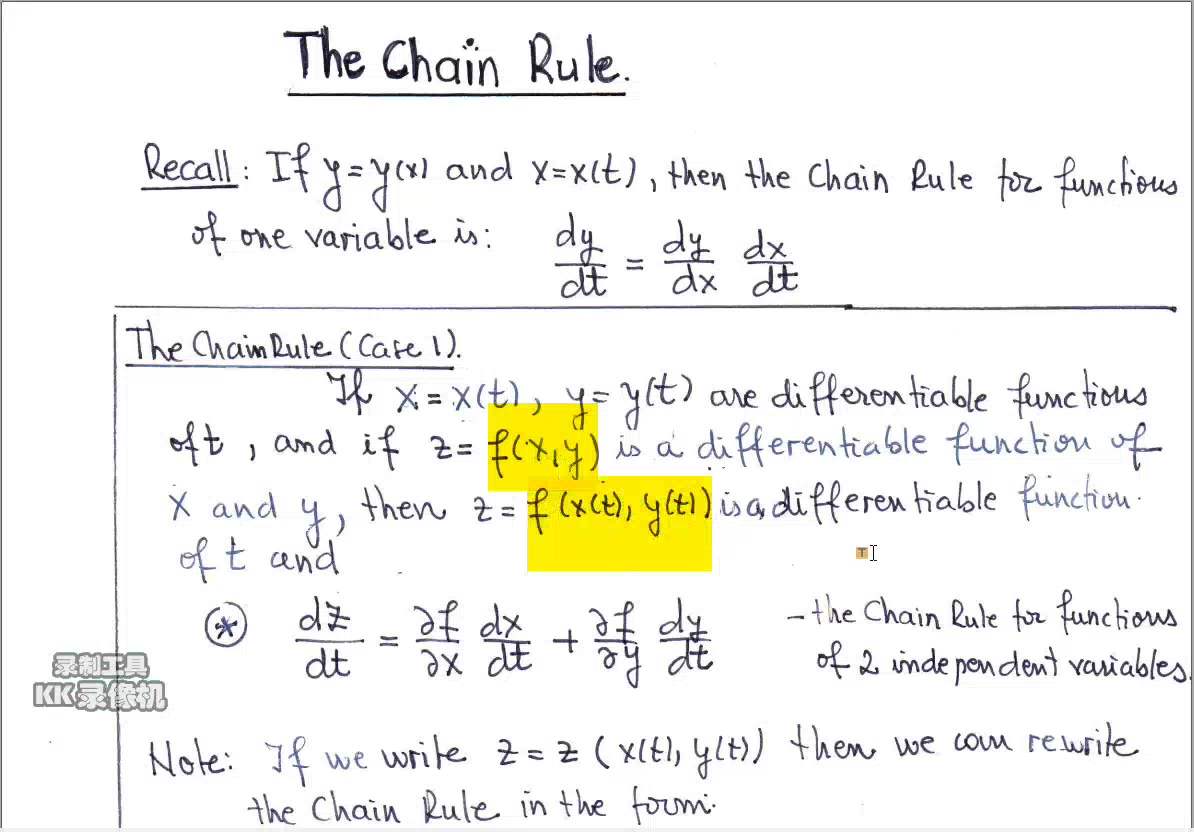 The Chain Rule.
Recall: If y=y(x) and x=x(t), then the Chain Rule for functions
of one variable is: dy/dt = dy/dx dx/dt
The Chain Rule (Case 1).
If x=x(t), y=y(t) are differentiable functions
of t, and if z=f(x,y) is a differentiable function of
x and y, then z=f(x(t), y(t)) is a differentiable function
of t and
(*) dz/dt = ∂f/∂x dx/dt + ∂f/∂y dy/dt - the Chain Rule for functions
of 2 independent variables.
录制工具
KK录像机
Note: If we write z=z(x(t), y(t)) then we can rewrite
the Chain Rule in the form: